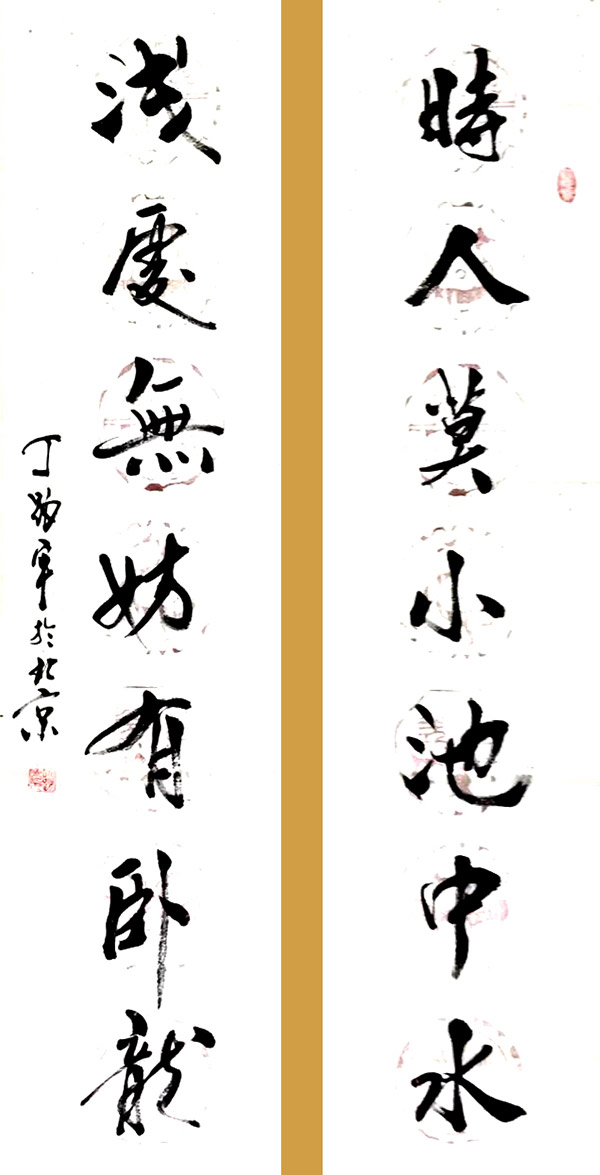 時人莫小池中水
淺處無妨有卧龍
丁軍於北京